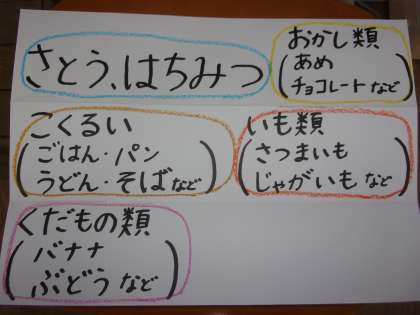 さとう、はちみつ
おかし類
(あめ
チョコレートなど)
こくるい
(ごはん・パン
うどん・そばなど)
いも類
(さつまいも
じゃがいもなど)
くだもの類
(バナナ
ぶどうなど)